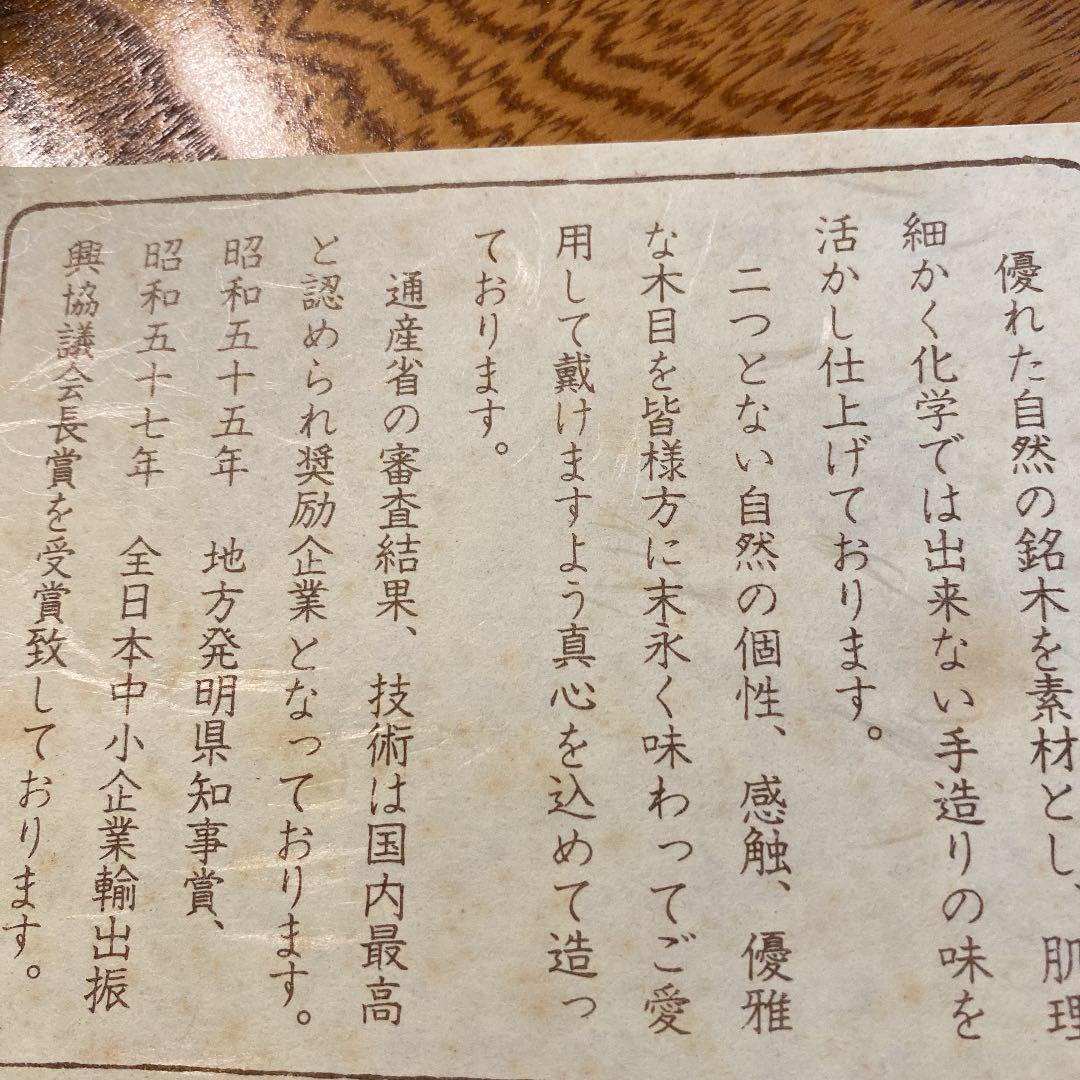 優れた自然の銘木を素材とし、肌理
細かく化学では出来ない手造りの味を
活かし仕上げております。
二つとない自然の個性、感触、優雅
な木目を皆様方に末永く味わってご愛
用して戴けますよう真心を込めて造っ
ております。
通産省の審査結果、技術は国内最高
と認められ奨励企業となっております。
昭和五十五年　地方発明県知事賞、
昭和五十七年　全日本中小企業輸出振
興協議会長賞を受賞致しております。